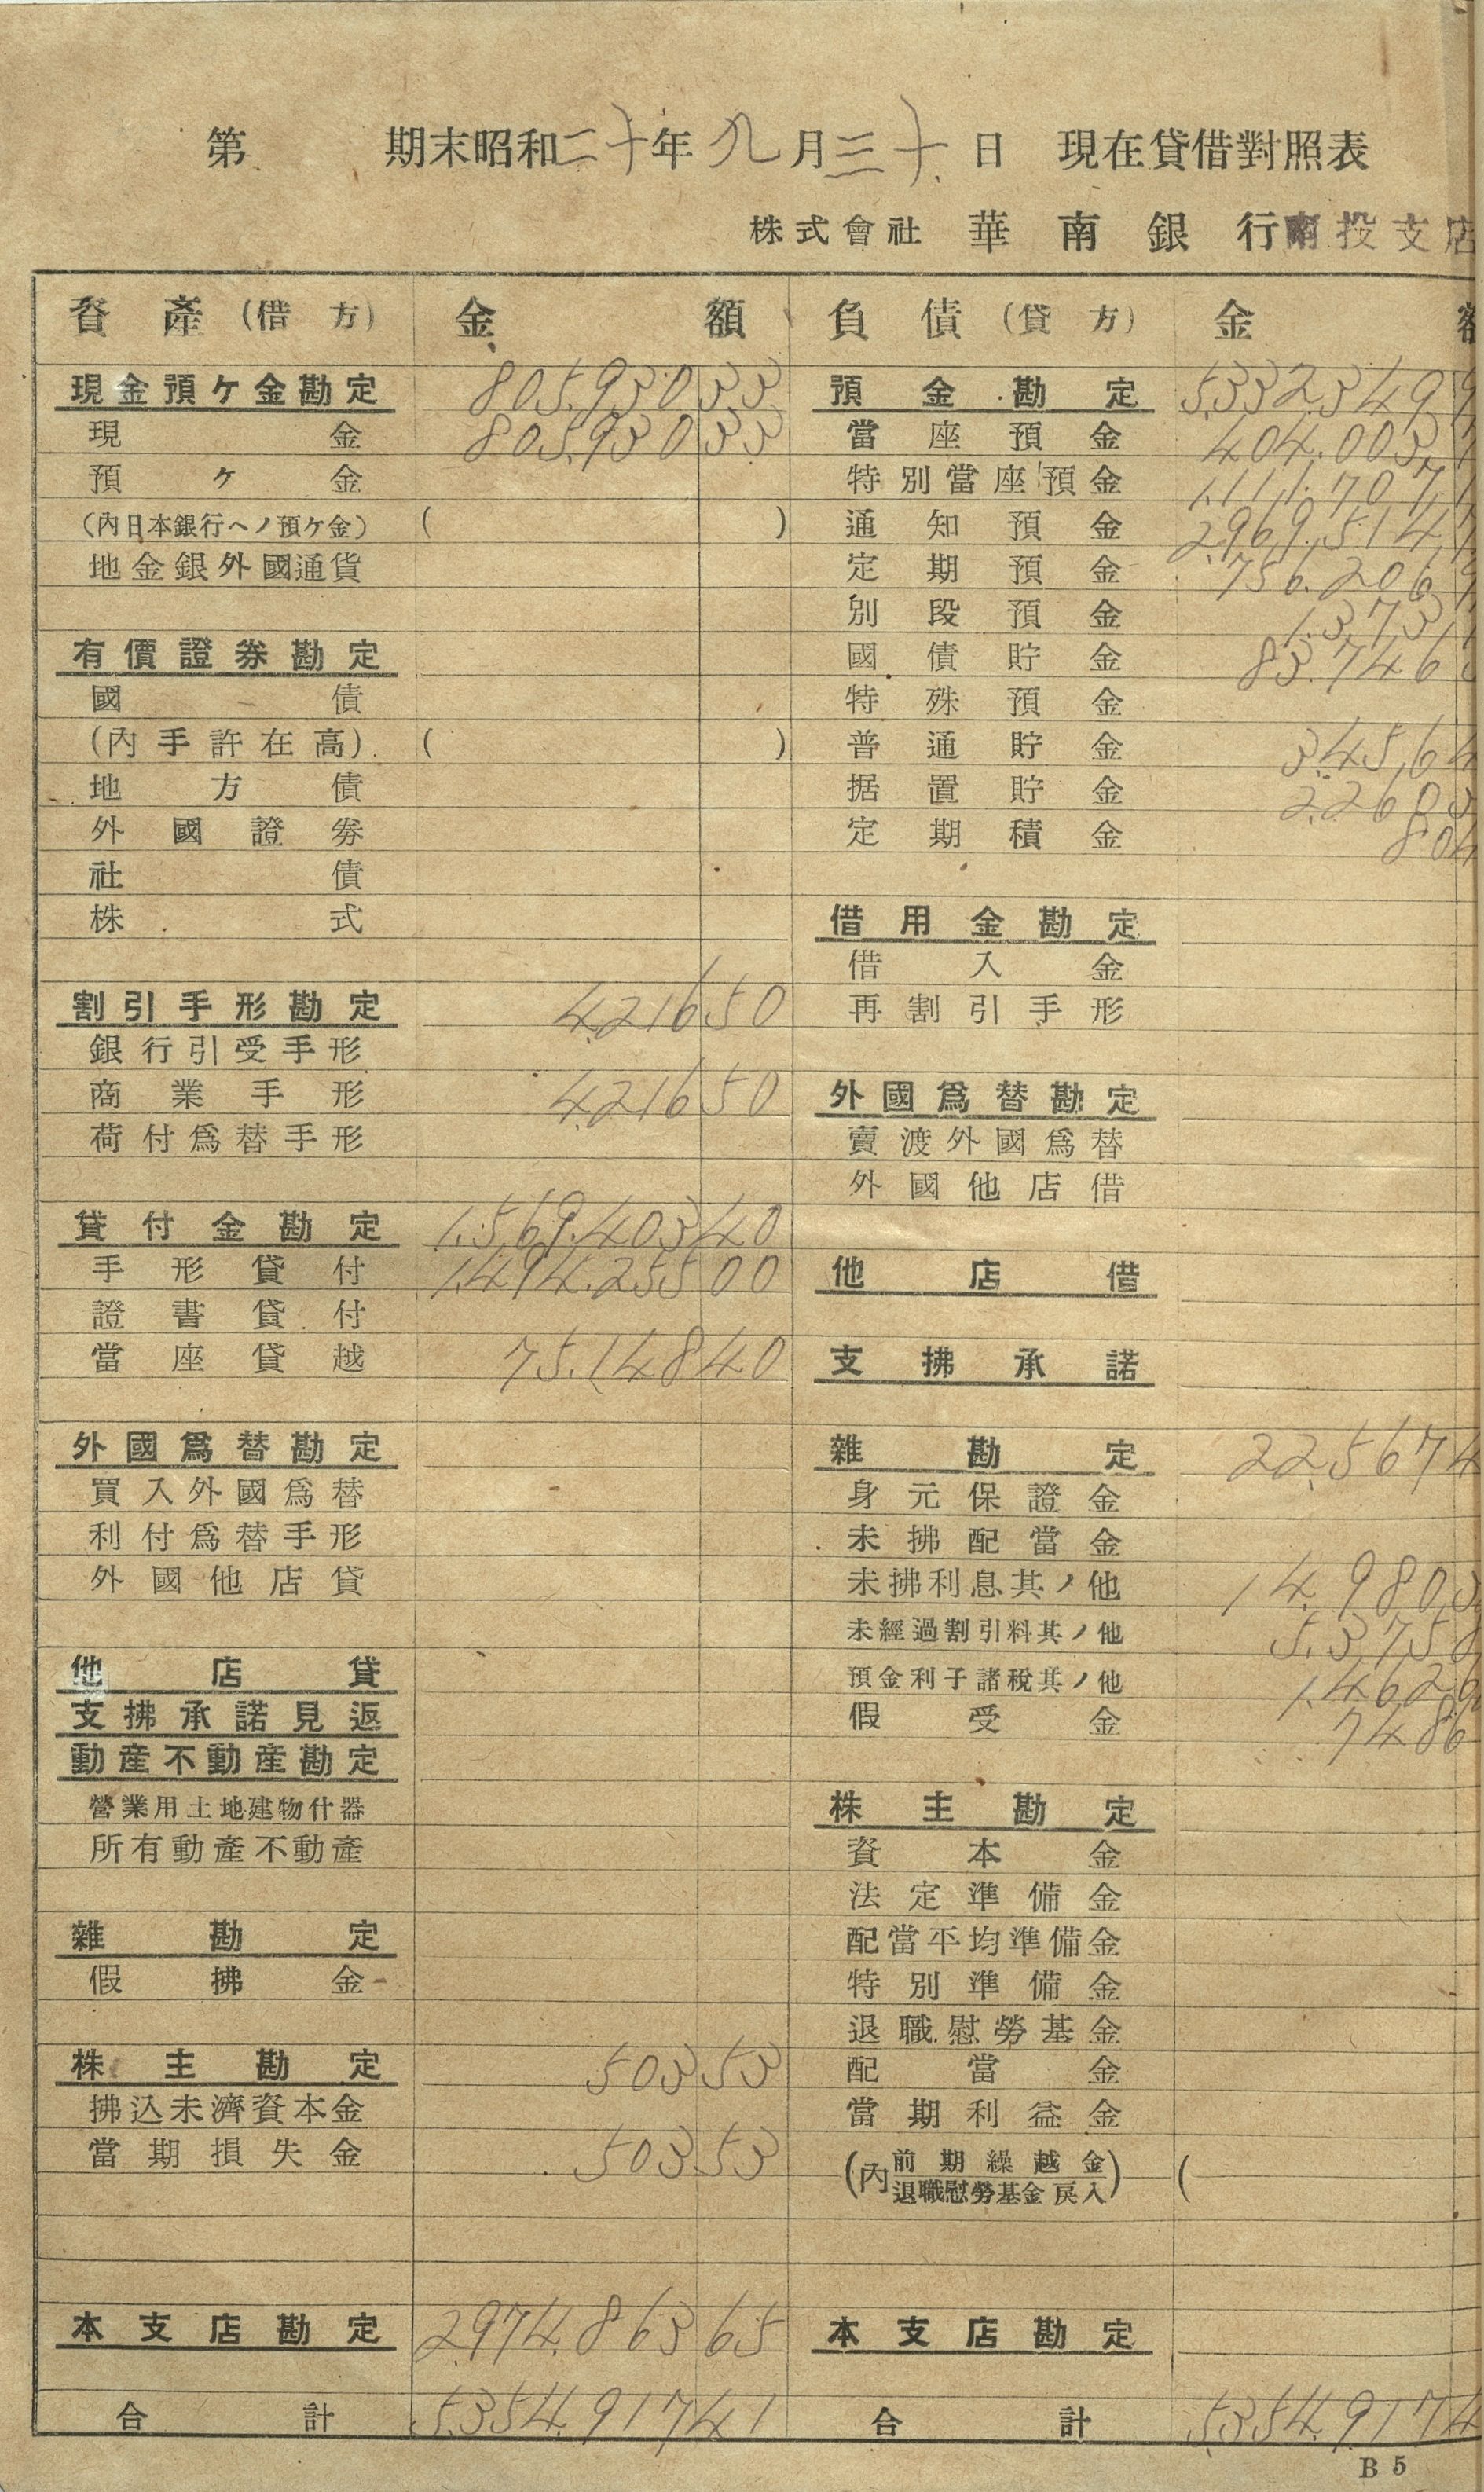 第 期末昭和二十年九月三十日 現在貸借對照表
株式會社 華南銀行南投支店
資產(借方) 金額 負債(貸方) 金額
現金預ケ金勘定 805,930 33
現金 805,930 33
預ケ金
(內日本銀行ヘノ預ケ金) ( )
地金銀外國通貨
有價證券勘定
國債
(內手許在高) ( )
地方債
外國證券
社債
株式
割引手形勘定 4,216 50
銀行引受手形
商業手形 4,216 50
荷付爲替手形
貸付金勘定 1,569,403 40
手形貸付 1,494,255 00
證書貸付
當座貸越 75,148 40
外國爲替勘定
買入外國爲替
利付爲替手形
外國他店貸
他店貸
支拂承諾見返
動產不動產勘定
營業用土地建物什器
所有動產不動產
雜勘定
假拂金
株主勘定 503 53
拂込未濟資本金
當期損失金 503 53
本支店勘定 2,974,863 65
合計 5,354,917 41
預金勘定 5,332,349
當座預金 404,003
特別當座預金 1,111,707
通知預金 2,969,514
定期預金 756,206
別段預金 1,373
國債貯金 83,746
特殊預金
普通貯金 3,45,6
据置貯金 2,26
定期積金 8
借用金勘定
借入金
再割引手形
外國爲替勘定
賣渡外國爲替
外國他店借
他店借
支拂承諾
雜勘定 22,567 4
身元保證金
未拂配當金
未拂利息其ノ他 14,980
未經過割引料其ノ他 5,375
預金利子諸稅其ノ他 1,462
假受金 748
株主勘定
資本金
法定準備金
配當平均準備金
特別準備金
退職慰勞基金
配當金
當期利益金
(內前期繰越金
退職慰勞基金戾入) (
本支店勘定
合計 5,354,917 4
B 5